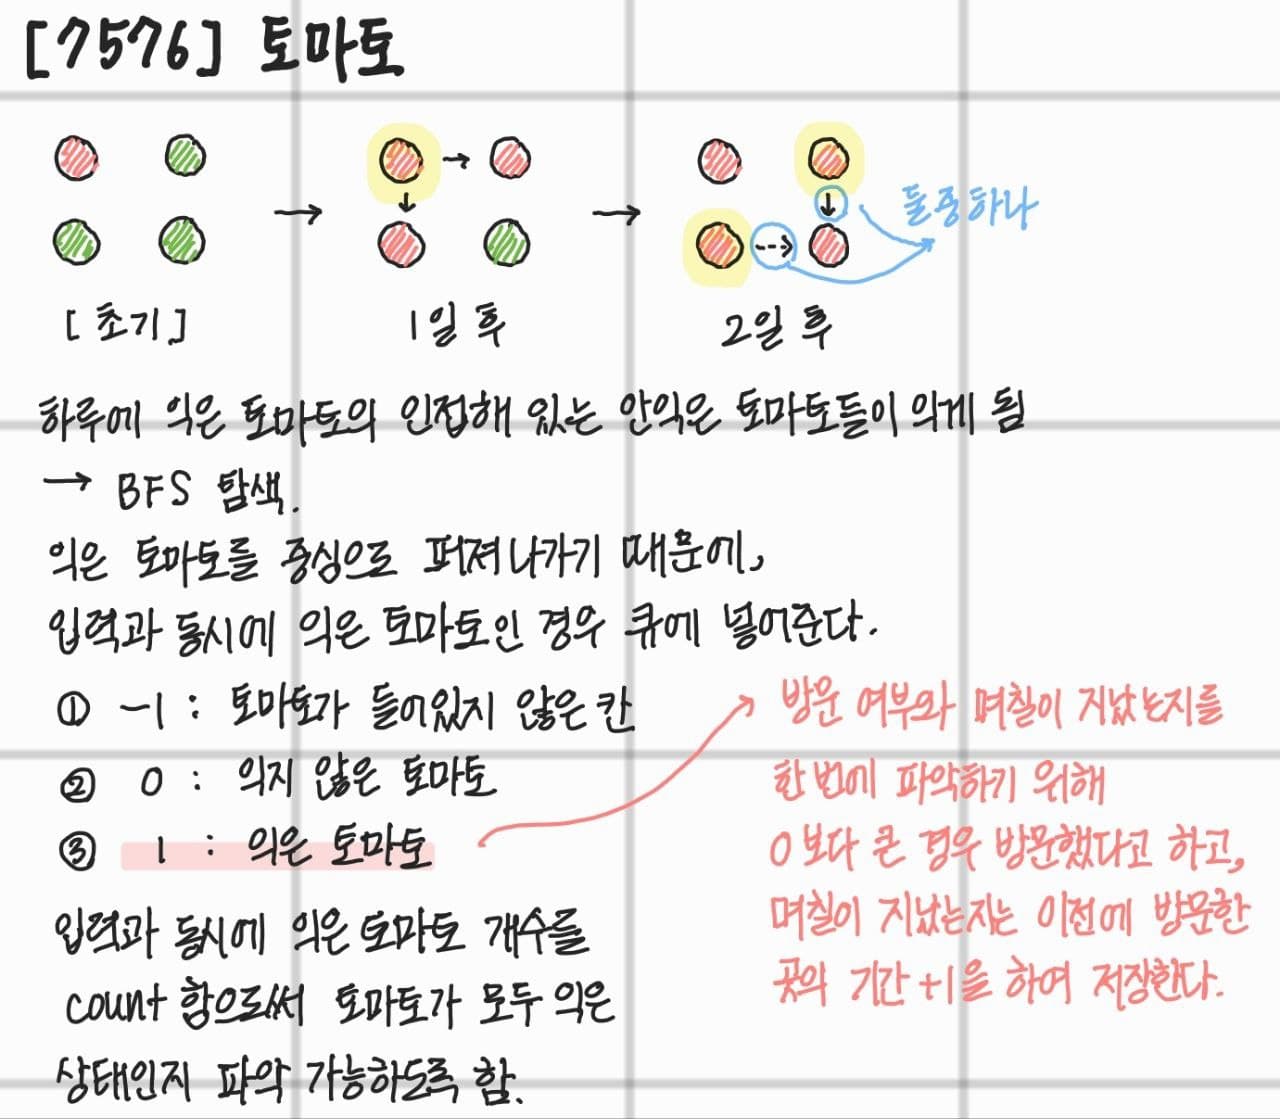 [7576] 토마토
둘중하나
[초기]
1일 후
2일 후
하루에 익은 토마토의 인접해 있는 안익은 토마토들이 익게 됨
→ BFS 탐색.
익은 토마토를 중심으로 퍼져나가기 때문에,
입력과 동시에 익은 토마토인 경우 큐에 넣어준다.
① -1 : 토마토가 들어있지 않은 칸
② 0 : 익지 않은 토마토
③ 1 : 익은 토마토
방문 여부와 며칠이 지났는지를
한 번에 파악하기 위해
0보다 큰 경우 방문했다고 하고,
며칠이 지났는지는 이전에 방문한
곳의 기간 +1을 하여 저장한다.
입력과 동시에 익은 토마토 개수를
count 함으로써 토마토가 모두 익은
상태인지 파악 가능하도록 함.